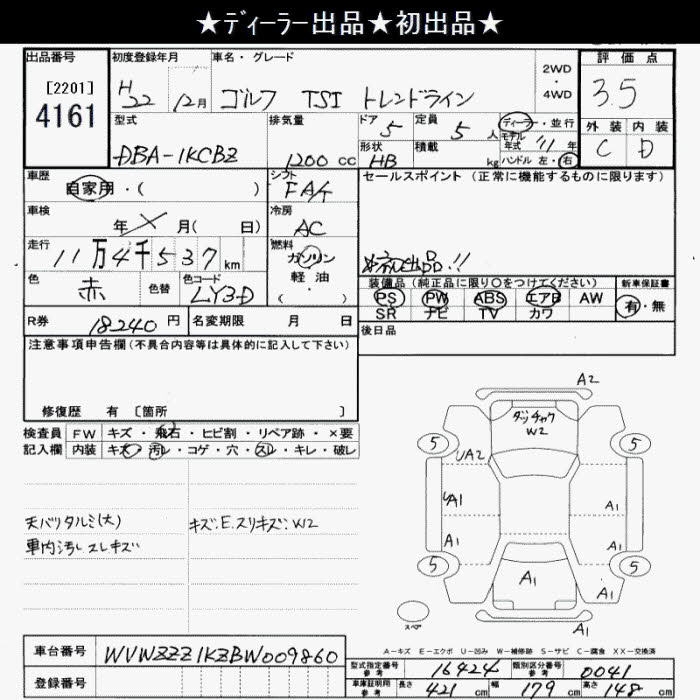 ★ディーラー出品★初出品★
出品番号
[2201]
4161
初度登録年月
H22 12月
車名・グレード
ゴルフ TSI トレンドライン
2WD
・
4WD
評価点
3.5
外装 内装
C D
型式
DBA-1KCBZ
排気量
1200 cc
ドア
5
定員
5人
ディーラー・並行
モデル年式 '11年
形状
HB
積載
kg
ハンドル 左・右
車歴
自家用・( )
シフト
FA7
セールスポイント(正常に機能するものに限ります)
初出品!!
車検
年 月( 日)
冷房
AC
走行
11万4千537km
燃料
ガソリン
軽油
・( )
色
赤
色替
色コード
LY3D
装備品(純正品に限り〇をつけてください)
PS PW ABS エアB AW
SR ナビ TV カワ
新車保証書
有・無
R券
18240円
名変期限 月 日
後日品
注意事項申告欄(不具合内容等は具体的に記入して下さい)
修復歴 有 [箇所 ]
検査員
記入欄
FW キズ・飛石・ヒビ割・リペア跡・×要
内装 キズ・汚レ・コゲ・穴・スレ・キレ・破レ
天バリタルミ(大)
キズ:E.スリキズ:W2
車内汚レスレキズ
A2
ダッチャク
W2
5
5
UA2
UA1
A1
A1
A1
A1
5
5
A1
A1
スペア
A-キズ E-エクボ U-凹み W-補修跡 S-サビ C-腐食 XX-交換済
車台番号
WVWZZZ1KZBW009860
登録番号
型式指定番号
参考
16424
類別区分番号
参考
0041
車庫証明用
参考
長さ 421cm
幅 179cm
高さ 148cm